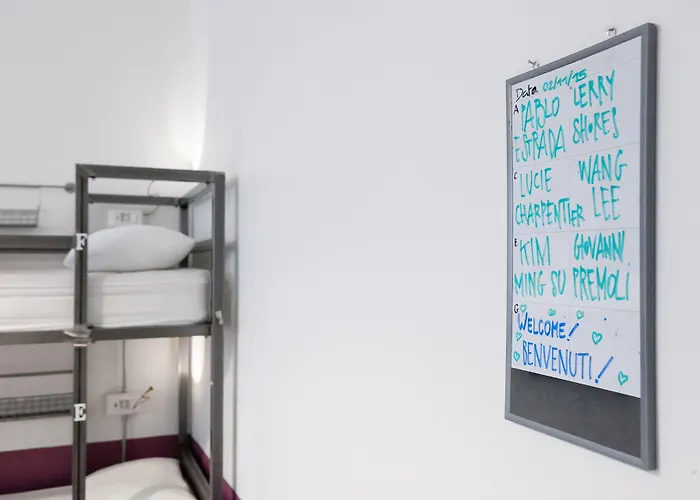 Data 02/11/15
A PABLO LERRY
ESTRADA SHORES
C LUCIE WANG
CHARPENTIER LEE
E KIM GIOVANNI
MING SU PREMOLI
G WELCOME!
BENVENUTI!
F
E